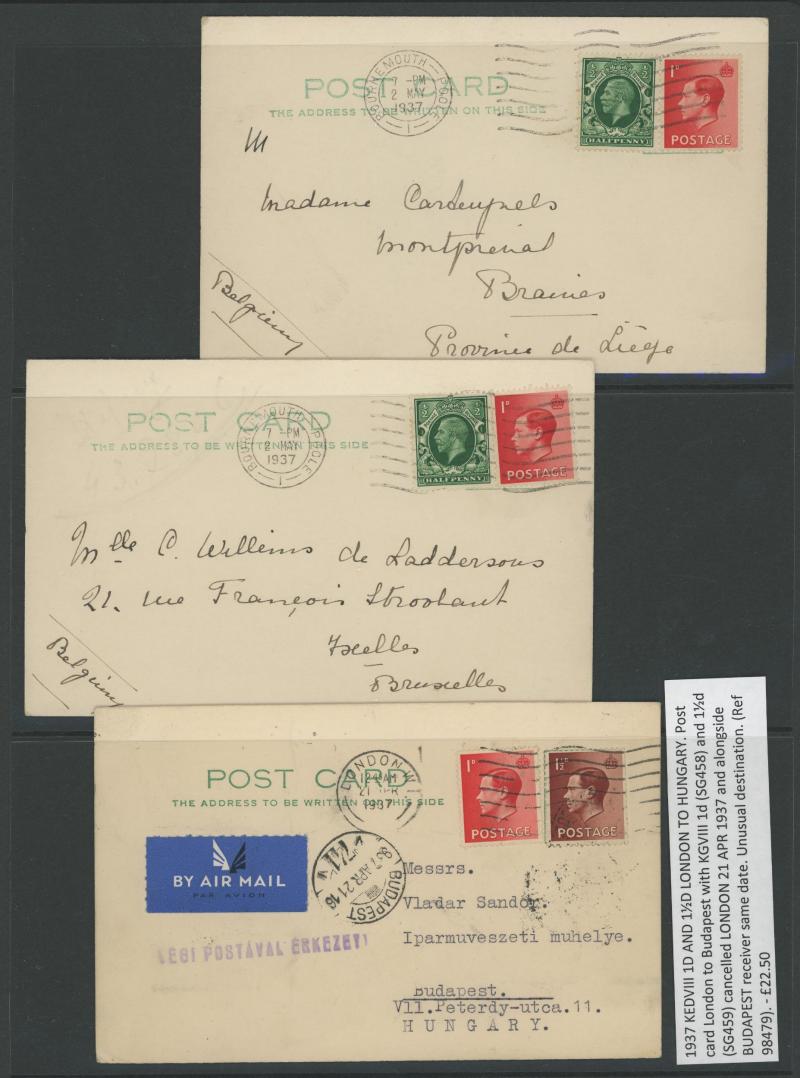 POST CARD
THE ADDRESS TO BE WRITTEN ON THIS SIDE
BOURNEMOUTH - POOLE
7 - PM
2 MAY
1937
1
½ ½
HALFPENNY
1D
POSTAGE
Madame
Montprenal
Braives
Province de Liège
Belgium
POST CARD
THE ADDRESS TO BE WRITTEN ON THIS SIDE
BOURNEMOUTH - POOLE
7 - PM
2 MAY
1937
1
½ ½
HALFPENNY
1D
POSTAGE
Mlle C. Willems de Laddersous
21. rue François Stroobant
Ixelles
Bruxelles
Belgium
POST CARD
THE ADDRESS TO BE WRITTEN ON THIS SIDE
LONDON W.1
12 AM
21 APR
1937
1D
POSTAGE
1½D
POSTAGE
BY AIR MAIL
PAR AVION
BUDAPEST
APR 21 16
LÉGI POSTÁVAL ÉRKEZETT
Messrs.
Vladar Sandor.
Iparmuveszeti muhelye.
Budapest.
Vll.Peterdy-utca.11.
HUNGARY.
1937 KEDVIII 1D AND 1½D LONDON TO HUNGARY. Post
card London to Budapest with KGVIII 1d (SG458) and 1½d
(SG459) cancelled LONDON 21 APR 1937 and alongside
BUDAPEST receiver same date. Unusual destination. (Ref
98479). - £22.50